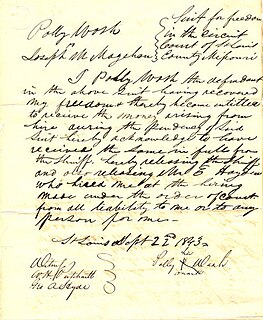 Polly Wash
Suit for freedom
in the circuit
Court of St Louis
Joseph M Magehan
County Missouri
I Polly Wash the defendant
in the above suit having recovered
my freedom & thereby become entitled
to receive the money arising from
hire during the pendency of said
suit hereby acknowledge to have
received the same in full from
the Sheriff hereby releasing the Sheriff
and also releasing
who hired me at the hiring
made under the order of Court
from all liability to me or to any
person for me
St Louis Sept 1843
Witness
her
Polly X Wash
mark
Geo A Hyde